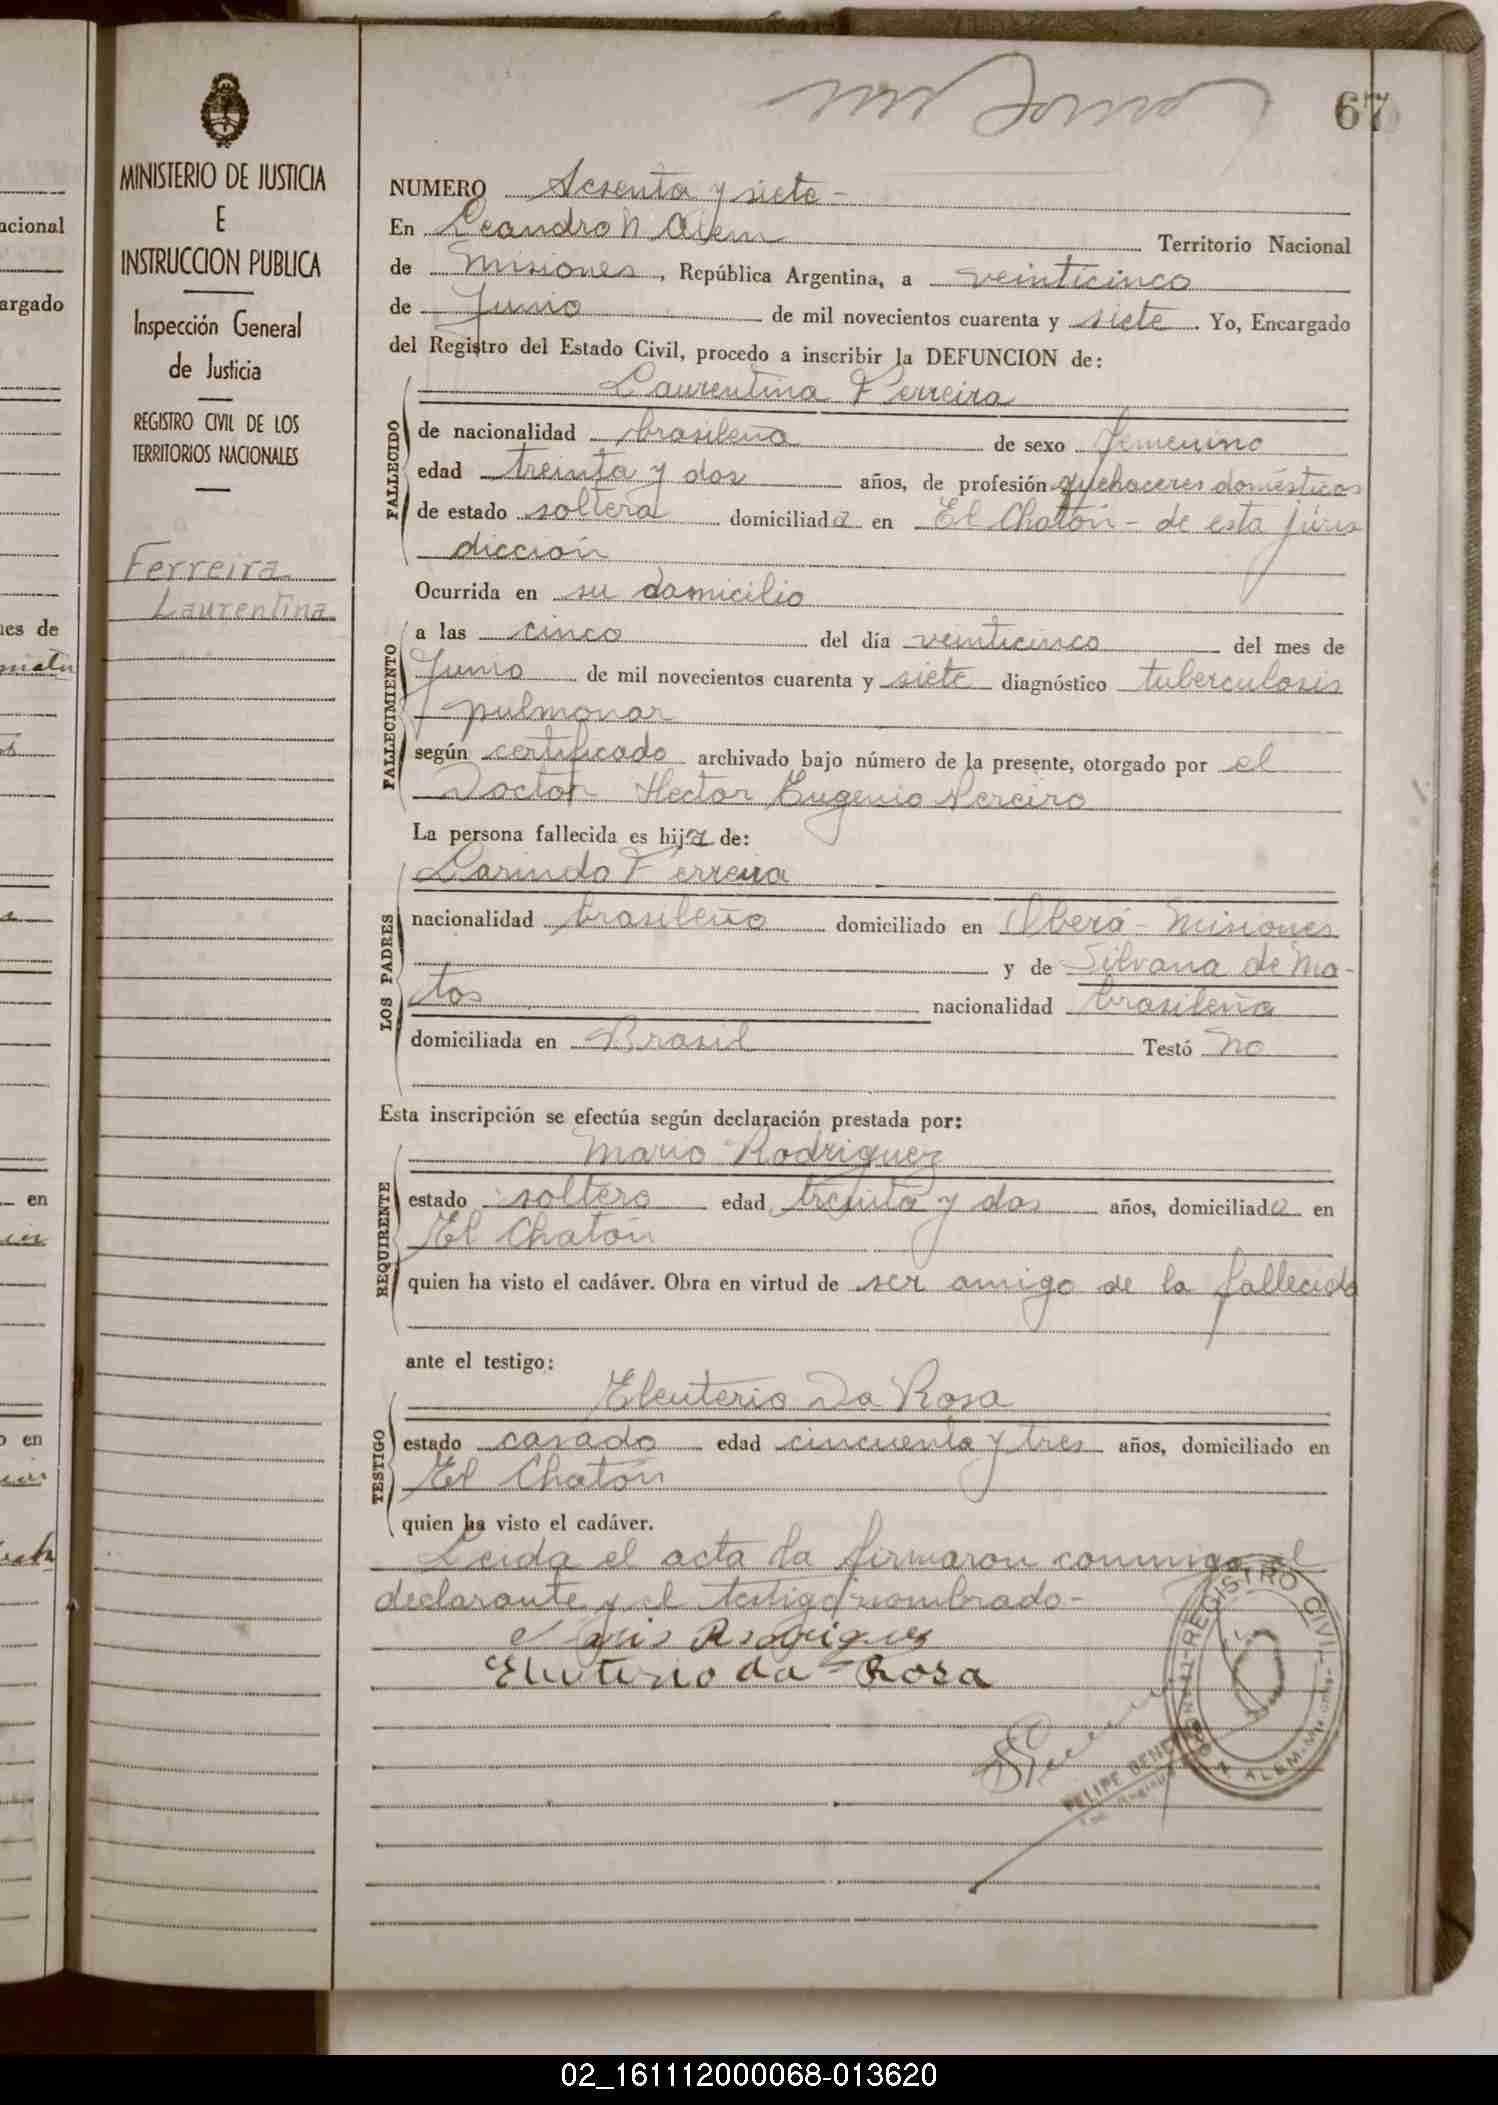 67
MINISTERIO DE JUSTICIA
E
INSTRUCCION PUBLICA
Inspección General
de Justicia
REGISTRO CIVIL DE LOS
TERRITORIOS NACIONALES
Ferreira
Laurentina
NUMERO Sesenta y siete -
En Leandro N Alem Territorio Nacional
de Misiones, República Argentina, a veinticinco
de Junio de mil novecientos cuarenta y siete. Yo, Encargado
del Registro del Estado Civil, procedo a inscribir la DEFUNCION de:
Laurentina Ferreira
FALLECIDO
de nacionalidad brasileña de sexo femenino
edad treinta y dos años, de profesión quehaceres domésticos
de estado soltera domiciliada en El Chatón - de esta juris
dicción
Ocurrida en su domicilio
FALLECIMIENTO
a las cinco del día veinticinco del mes de
Junio de mil novecientos cuarenta y siete diagnóstico tuberculosis
pulmonar
según certificado archivado bajo número de la presente, otorgado por el
Doctor Hector Eugenio Pereiro
La persona fallecida es hija de:
LOS PADRES
Larindo Ferreira
nacionalidad brasileño domiciliado en Oberá - Misiones
y de Silvana de Ma-
tos nacionalidad brasileña
domiciliada en Brasil Testó no
Esta inscripción se efectúa según declaración prestada por:
REQUIRENTE
Mario Rodriguez
estado soltero edad treinta y dos años, domiciliado en
El Chatón
quien ha visto el cadáver. Obra en virtud de ser amigo de la fallecida
ante el testigo:
TESTIGO
Eleuterio Da Rosa
estado casado edad cincuenta y tres años, domiciliado en
El Chatón
quien ha visto el cadáver.
Leida el acta la firmaron conmigo el
declarante y el testigo nombrado -
Mario Rodrigues
Eleuterio da Rosa
REGISTRO CIVIL
ALEM-Misiones
FELIPE
acional
argado
nes de
en
o en
02_161112000068-013620